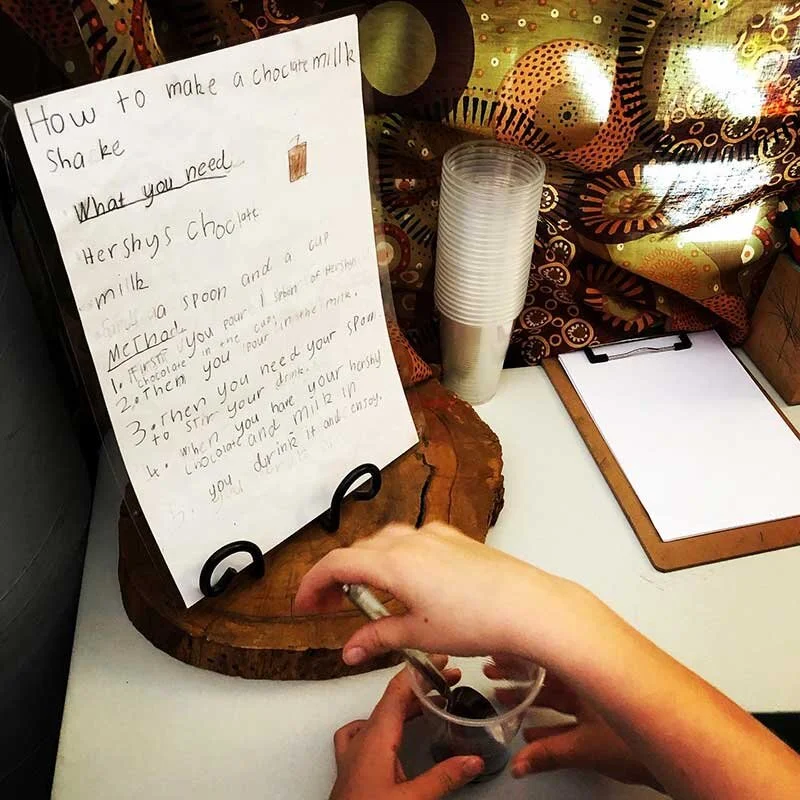 How to make a choclate millk
Shake
What you need
Hershys choclate
milk
a spoon and a cup
Method
1. First you pour 1 spoon of Hershys
chocolate in the cup.
2. Then you pour in the milk.
3. Then you need your spoon
to stir your drink.
4. When you have your hershy
chocolate and milk in
you drink it and enjoy.
5.